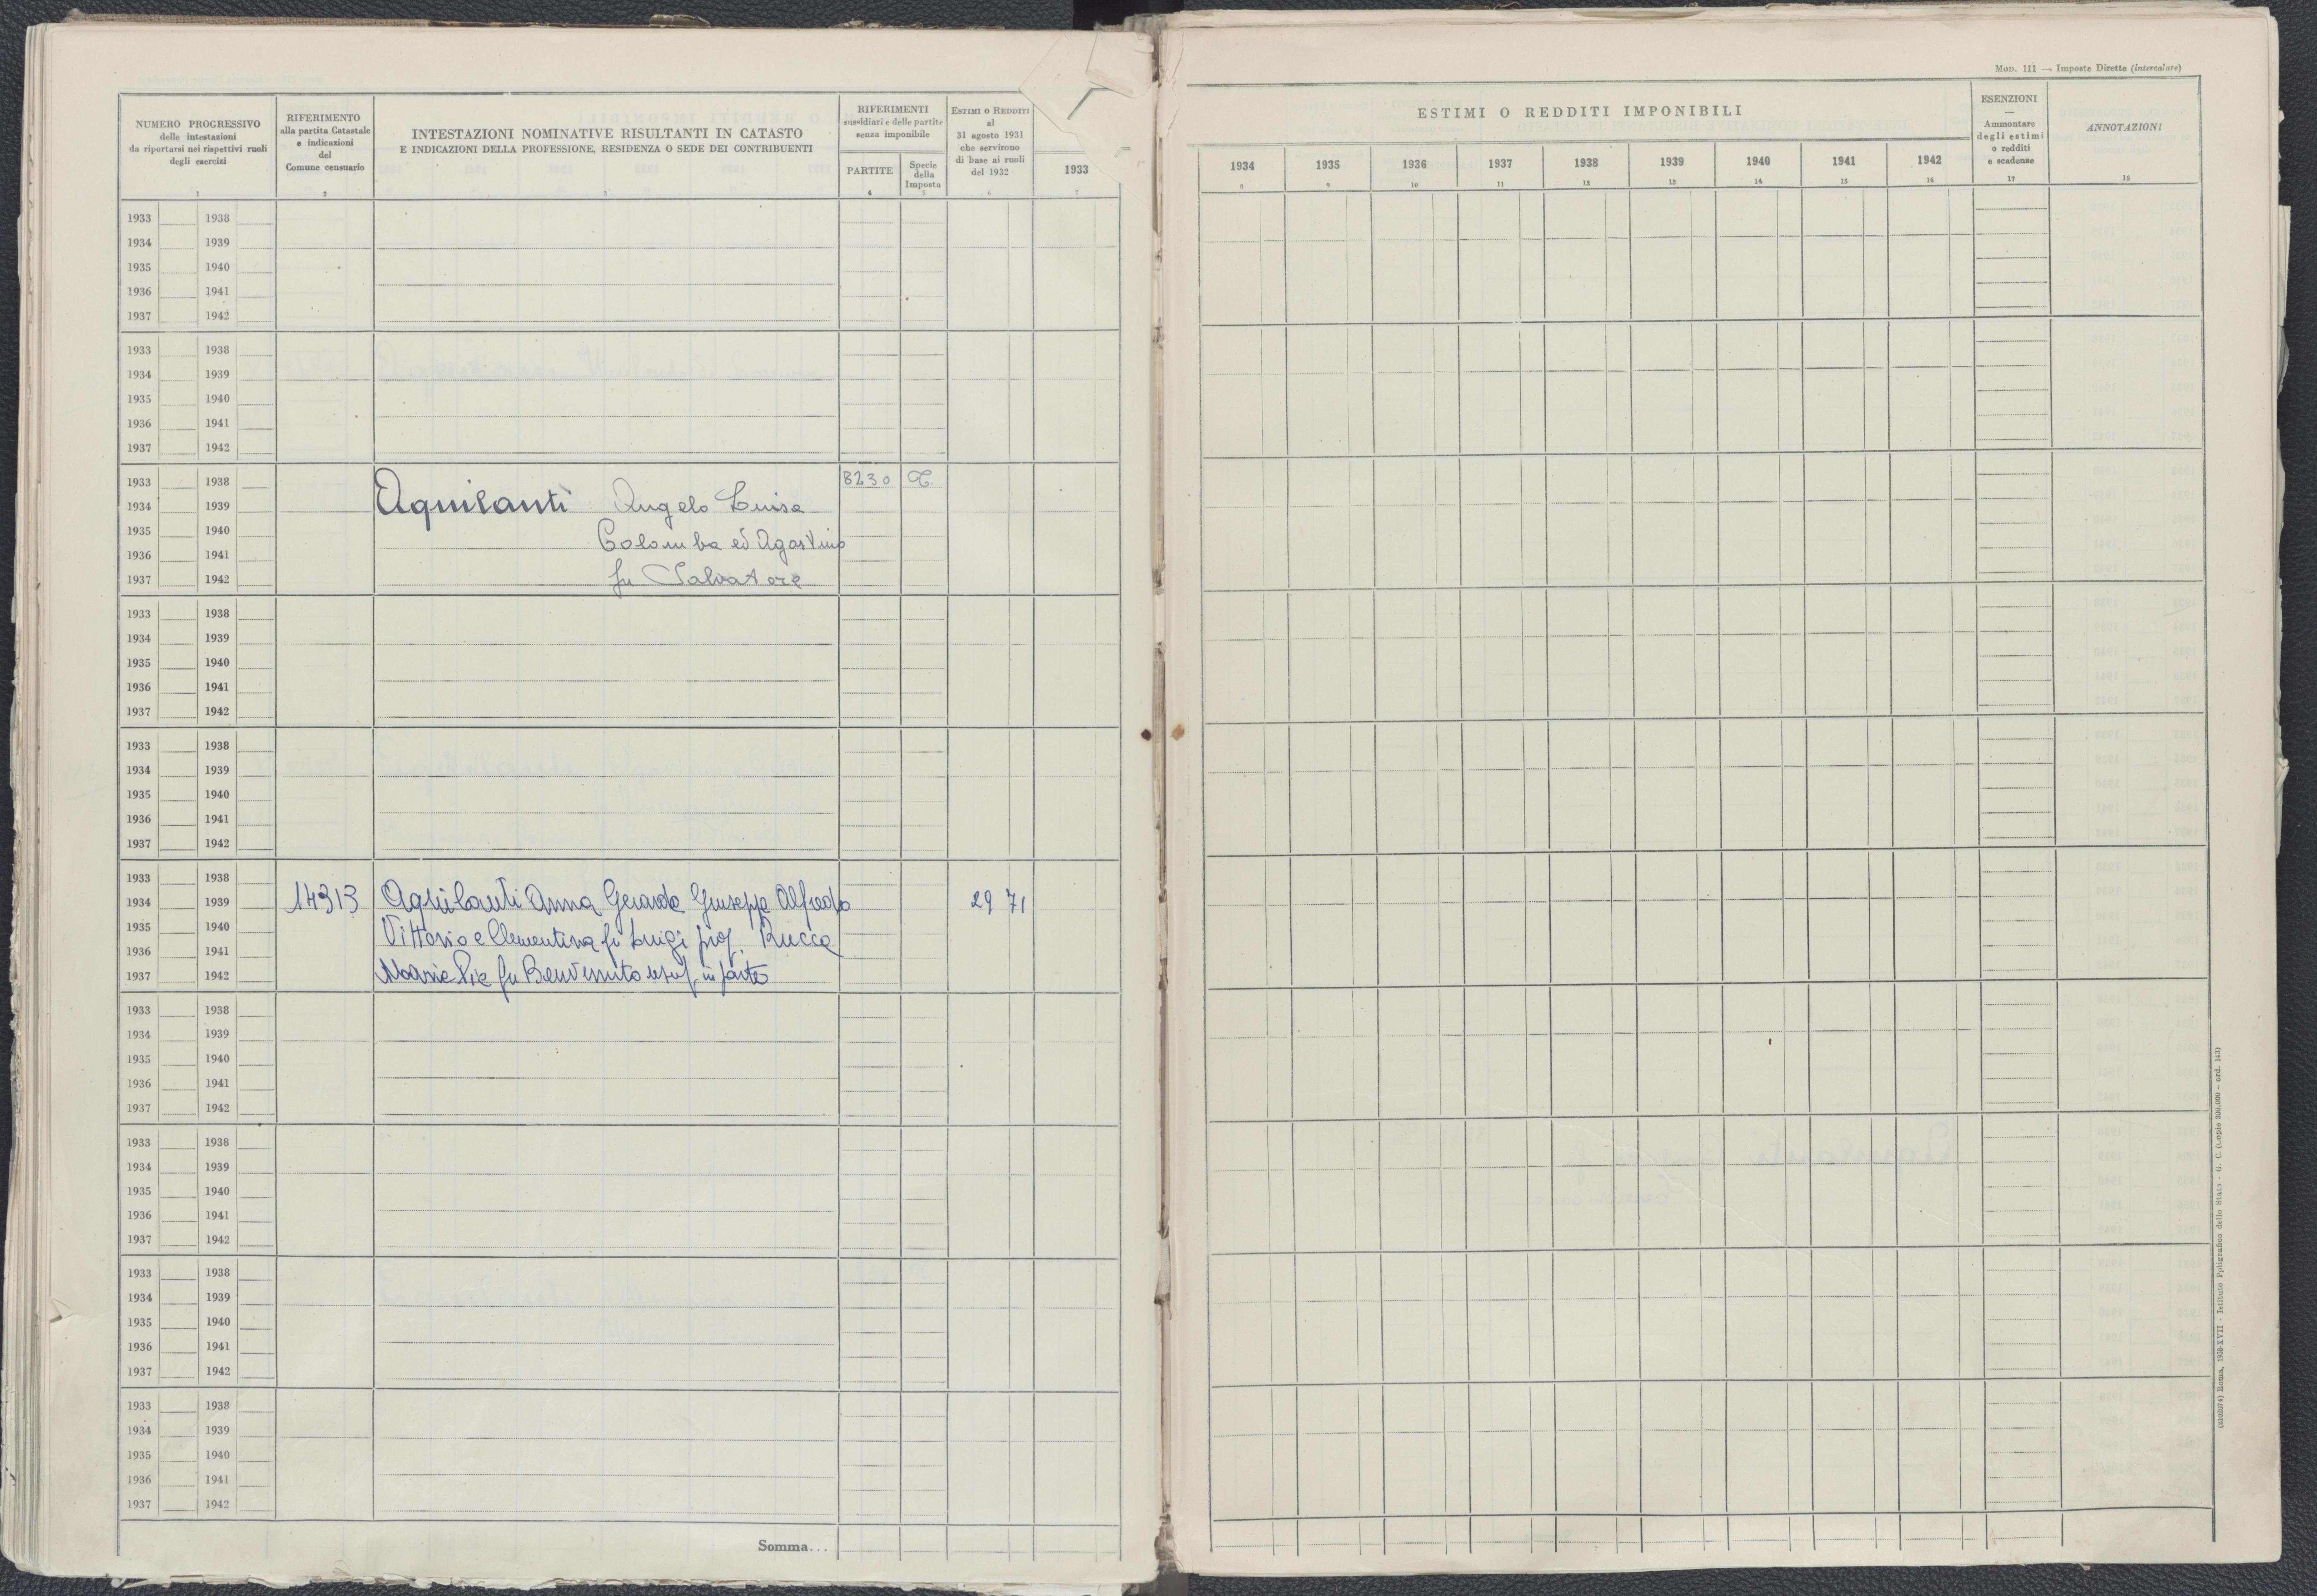 Mod. 111 — Imposte Dirette (intercalare)
NUMERO PROGRESSIVO
delle intestazioni
da riportarsi nei rispettivi ruoli
degli esercizi
1
RIFERIMENTO
alla partita Catastale
e indicazioni
del
Comune censuario
2
INTESTAZIONI NOMINATIVE RISULTANTI IN CATASTO
E INDICAZIONI DELLA PROFESSIONE, RESIDENZA O SEDE DEI CONTRIBUENTI
3
RIFERIMENTI
sussidiari e delle partite
senza imponibile
PARTITE
4
Specie
della
Imposta
5
Estimi o Redditi
al
31 agosto 1931
che servirono
di base ai ruoli
del 1932
6
1933
7
ESTIMI O REDDITI IMPONIBILI
1934 1935 1936 1937 1938 1939 1940 1941 1942
8 9 10 11 12 13 14 15 16
ESENZIONI
—
Ammontare
degli estimi
o redditi
e scadenze
17
ANNOTAZIONI
18
1933 1938
1934 1939
1935 1940
1936 1941
1937 1942
1933 1938
1934 1939
1935 1940
1936 1941
1937 1942
1933 1938 8230 T.
1934 1939 Aquilanti Angelo Luisa
1935 1940 Colomba ed Agostino
1936 1941
1937 1942 fu Salvatore
1933 1938
1934 1939
1935 1940
1936 1941
1937 1942
1933 1938
1934 1939
1935 1940
1936 1941
1937 1942
1933 1938
1934 1939 14313 Aquilanti Anna Gerardo Giuseppe Alfredo 29 71
1935 1940 Vittorio e Clementina fu Luigi prop. Rucca
1936 1941
1937 1942 Maria Pia fu Benvenuto usuf. in parte
1933 1938
1934 1939
1935 1940
1936 1941
1937 1942
1933 1938
1934 1939
1935 1940
1936 1941
1937 1942
1933 1938
1934 1939
1935 1940
1936 1941
1937 1942
1933 1938
1934 1939
1935 1940
1936 1941
1937 1942
Somma...
Roma, 1938-XVII - Istituto Poligrafico dello Stato - G. C. (Copie 300.000 - ord. 143)